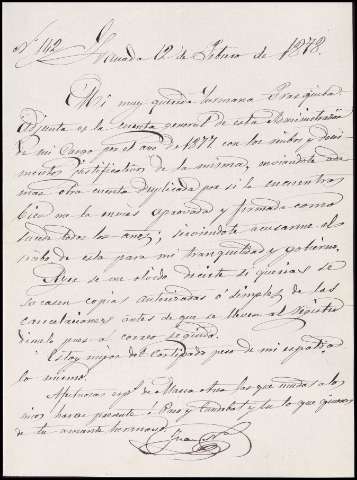 Nº 142 Granada 12 de Febrero de 1878.
Mi muy querida hermana Frasquita
Adjunta es la cuenta general de esta Administracion
de mi cargo por el año de 1877 con los
justificativos de la misma, enviandote ade
mas otra cuenta duplicada por si la encuentras
bien me la envias aprovada y firmada como
sucede todos los años; sirviendote acusarme el re
civo de esta para mi tranquilidad y govierno.
Ayer se me olvido decirte si querias se
sacasen copias autorizadas ó simples de las
cancelaciones antes de que se lleven al Registro
dimelo pues á correo seguido.
Estoy mejor del costipado pero de mi espalda
lo mismo.
Afectuosas de Maria Ana las que unidas a las
mias haras presente á Pepe y y tu lo que quieras
de tu amante hermano
Juan